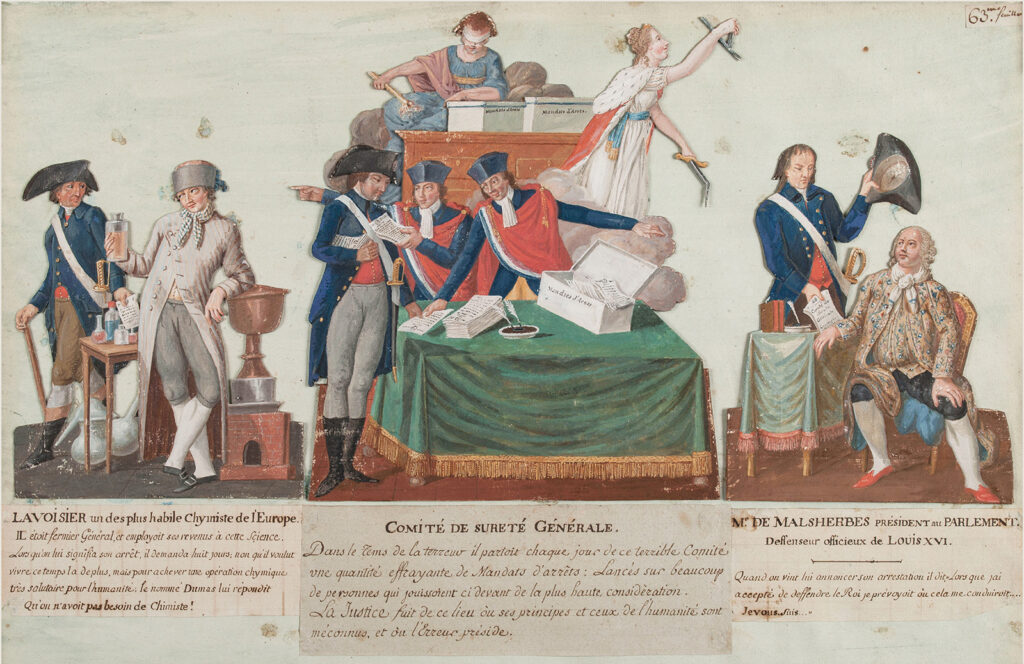 63.me feuille
Mandats d'Arets
Mandats d'Arets.
Mandats d'Arets
LAVOISIER un des plus habile Chymiste de l'Europe.
IL etoit fermier Général, et employoit ses revenus à cette Science.
Lorsqu'on lui signifia son arrêt, il demanda huit jours; non qu'il voulut
vivre ce temps la de plus, mais pour achever une opération chymique
très salutaire pour l'humanite; le nommé Dumas lui répondit
Qu'on n'avoit pas besoin de Chimiste!
COMITÉ DE SURETÉ GÉNÉRALE.
Dans le tems de la terreur il partoit chaque jour de ce terrible Comité
une quantité effrayante de Mandats d'arrêts; Lancés sur beaucoup
de personnes qui jouissoient ci devant de la plus haute considération.
La Justice fuit de ce lieu ou ses principes et ceux de l'humanité sont
méconnus, et ou l'Erreur préside.
Mr DE MALSHERBES PRÉSIDENT au PARLEMENT.
Deffenseur officieux de LOUIS XVI.
Quand on vint lui annoncer son arrestation il dit, Lors que jai
accepté de deffendre le Roi je prévoyoit où cela me conduiroit....
Je vous suis...„